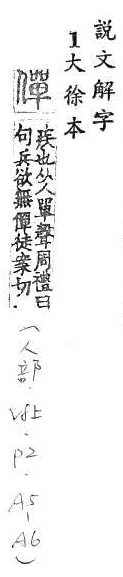 說文解字
1大徐本
僤
疾也从人單聲周禮曰
句兵欲無僤徒案切
(人部.V8上.P2.A5-A6)